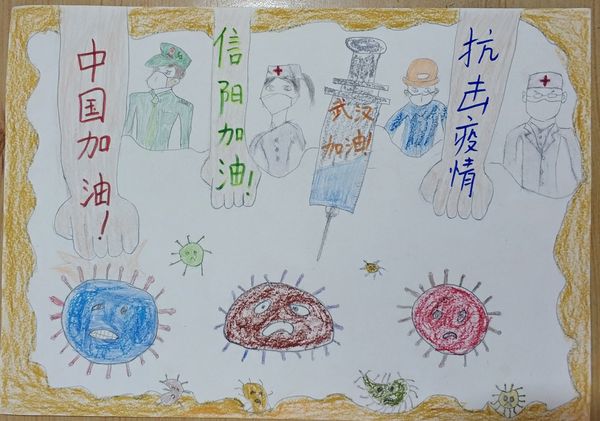 中国加油！
信阳加油！
武汉
加油！
抗击疫情